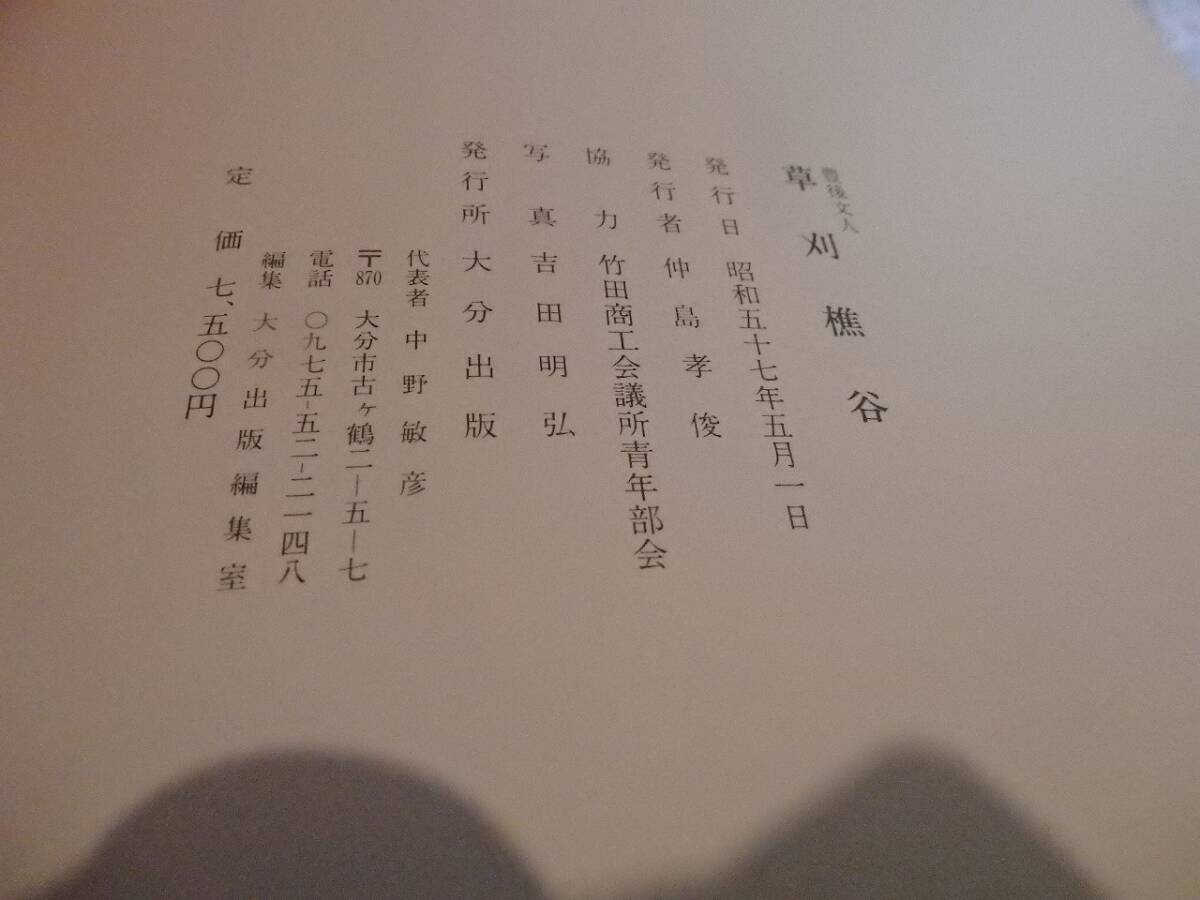 豊後文人
草刈樵谷
発行日 昭和五十七年五月一日
発行者 仲島孝俊
協力 竹田商工会議所青年部会
写真 吉田明弘
発行所 大分出版
代表者 中野敏彦
〒870 大分市古ヶ鶴二―五―七
電話 〇九七五-五二-二一四八
編集 大分出版編集室
定価 七、五〇〇円